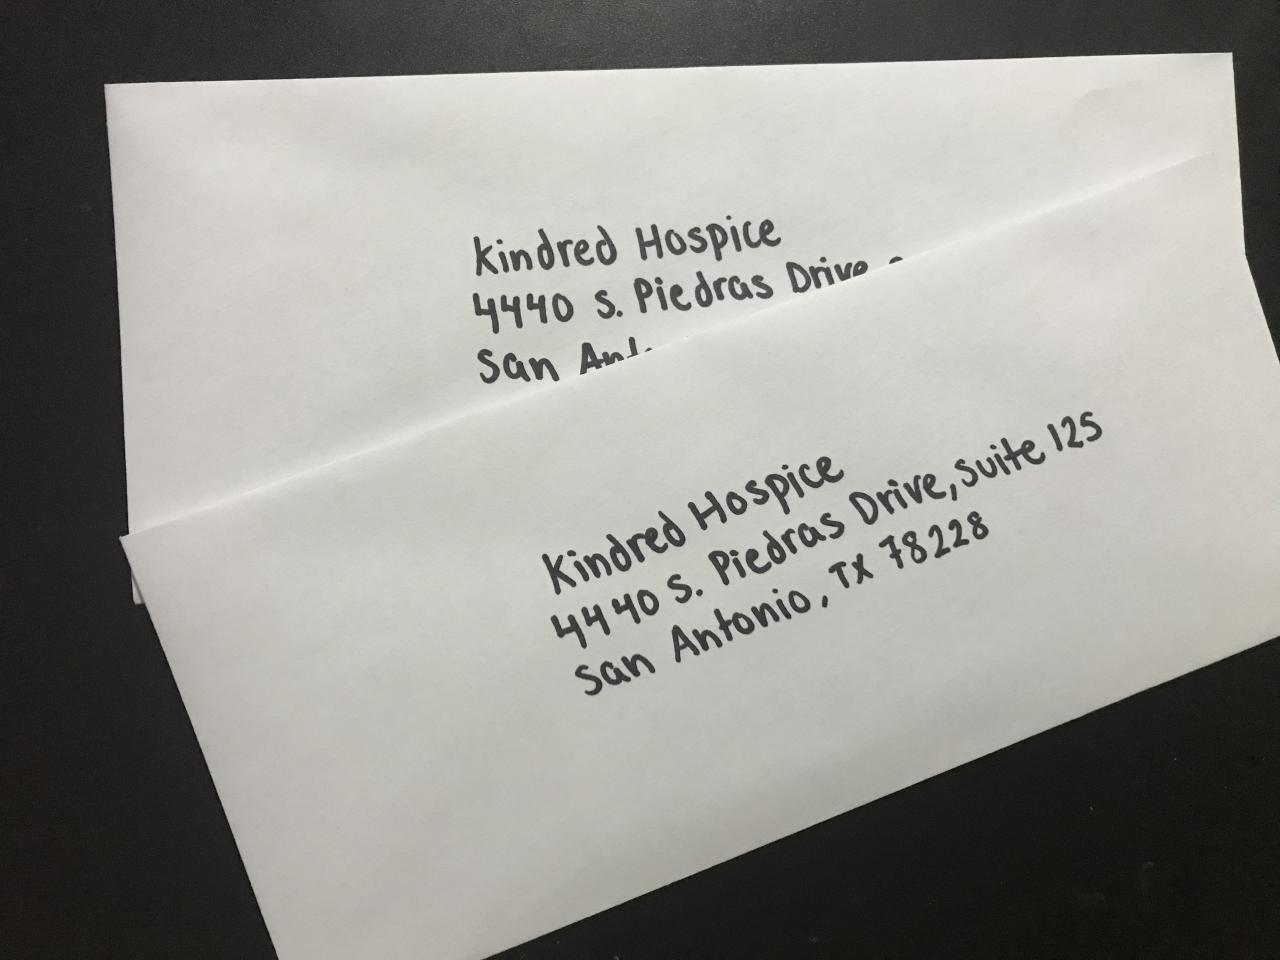 Kindred Hospice
4440 S. Piedras Drive
San
Kindred Hospice
4440 S. Piedras Drive, Suite 125
San Antonio, TX 78228